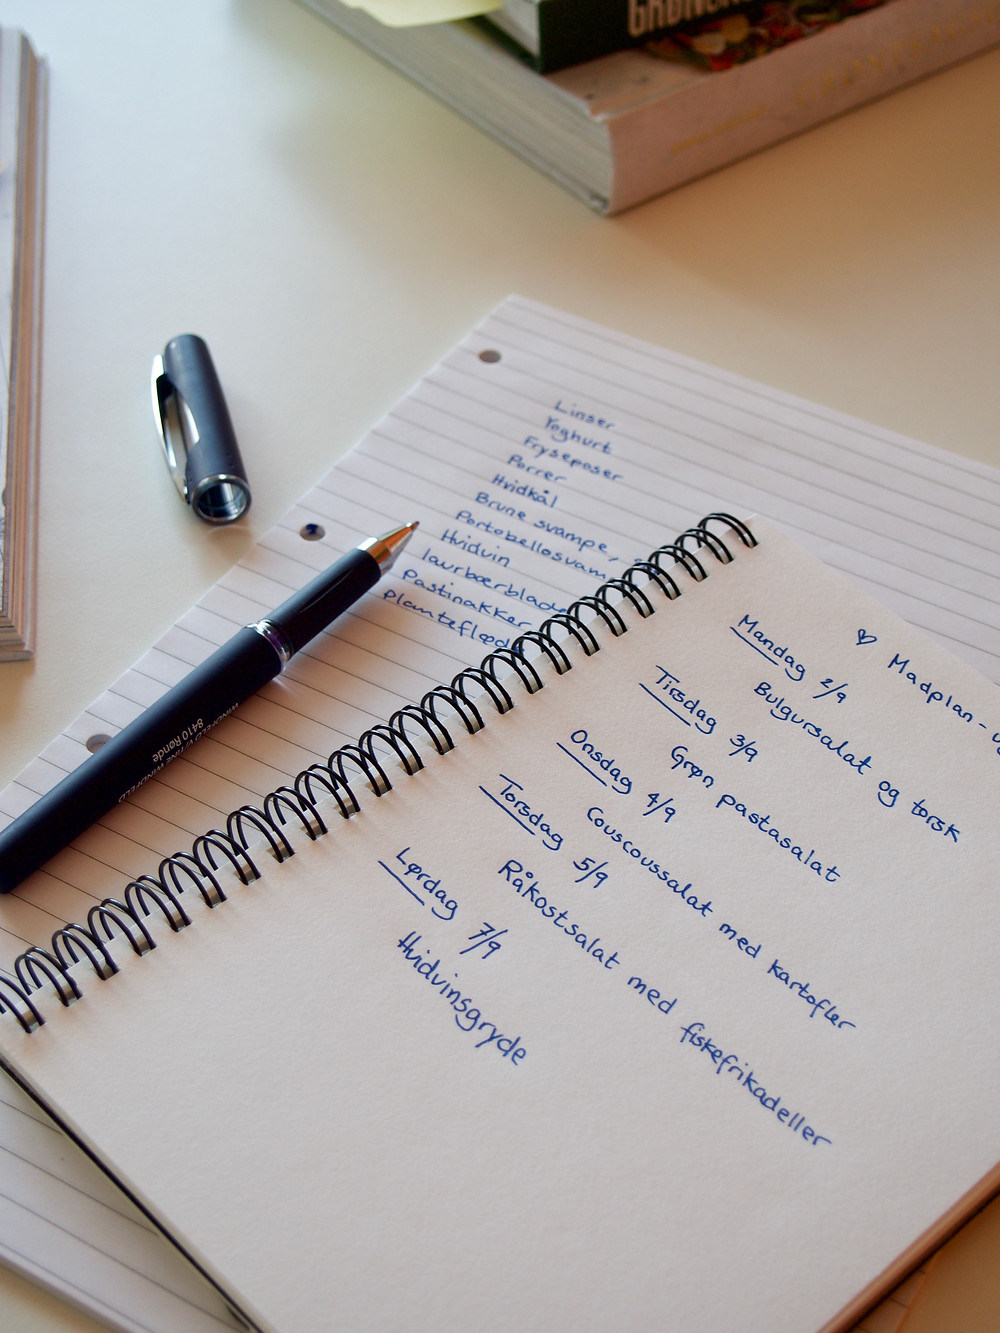 GRØNSA
Linser
Yoghurt
Fryseposer
Porrer
Hvidkål
Brune svampe,
Portobellosvam
Hvidvin
laurbærblade
Pastinakker
planteflød
WINDFELD V/TINE WINDFELD
8410 Rønde
♡ Madplan - u
Mandag 2/9
Bulgursalat og torsk
Tirsdag 3/9
Grøn pastasalat
Onsdag 4/9
Couscoussalat med kartofler
Torsdag 5/9
Råkostsalat med fiskefrikadeller
Lørdag 7/9
Hvidvinsgryde